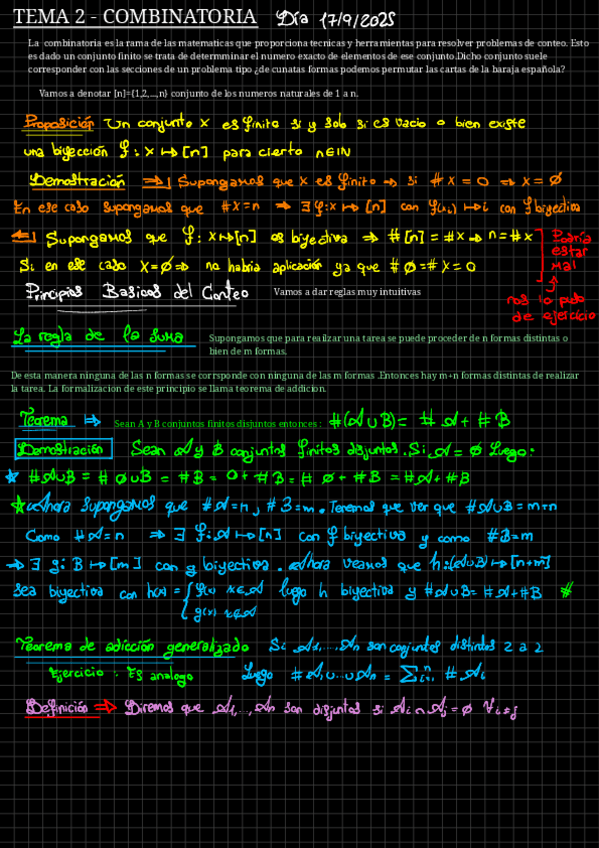 TEMA 2 - COMBINATORIA Día 17/9/2025
La combinatoria es la rama de las matematicas que proporciona tecnicas y herramientas para resolver problemas de conteo. Esto
es dado un conjunto finito se trata de determminar el numero exacto de elementos de ese conjunto.Dicho conjunto suele
corresponder con las secciones de un problema tipo ¿de cunatas formas podemos permutar las cartas de la baraja española?
Vamos a denotar [n]={1,2,...,n} conjunto de los numeros naturales de 1 a n.
Proposición Un conjunto X es finito si y solo si es vacio o bien existe
una biyección f: X ↦ [n] para cierto n∈IN
Demostración ⇒| Supongamos que X es finito ⇒ si #X = 0 ⇒ X = ∅
En ese caso supongamos que #X = n ⇒ ∃ f: X ↦ [n] con f(xi) ↦ i con f biyectiva
⇐| Supongamos que f: X ↦ [n] es biyectiva ⇒ #[n] = #X ⇒ n = #X
Si en ese caso X = ∅ ⇒ no habria aplicación ya que #∅ = #X = 0
Podria estar mal
nos lo puso de ejercicio
Principios Basicos del Conteo Vamos a dar reglas muy intuitivas
La regla de la suma Supongamos que para realizar una tarea se puede proceder de n formas distintas o
bien de m formas.
De esta manera ninguna de las n formas se corrsponde con ninguna de las m formas .Entonces hay m+n formas distintas de realizar
la tarea. La formalizacion de este principio se llama teorema de addicion.
Teorema ⇒ Sean A y B conjuntos finitos disjuntos entonces : #(A∪B) = #A + #B
Demostración Sean A y B conjuntos finitos disjuntos. Si A = ∅ luego:
#A∪B = #∅∪B = #B = 0 + #B = #∅ + #B = #A + #B
Ahora supongamos que #A = n, #B = m. Tenemos que ver que #A∪B = m+n
Como #A = n ⇒ ∃ f: A ↦ [n] con f biyectiva y como #B = m
⇒ ∃ g: B ↦ [m] con g biyectiva. Ahora veamos que h: (A∪B) ↦ [n+m]
sea biyectiva con h(x) = { f(x) x∈A luego h biyectiva y #A∪B = #A + #B #
g(x) x∉A
Teorema de adicción generalizado Si A1,...,An son conjuntos distintos 2 a 2
Ejercicio : Es analogo Luego #A1∪...∪An = ∑ⁿi=1 #Ai
Definición ⇒ Diremos que A1,...,An son disjuntos si Ai ∩ Aj = ∅ ∀i≠j